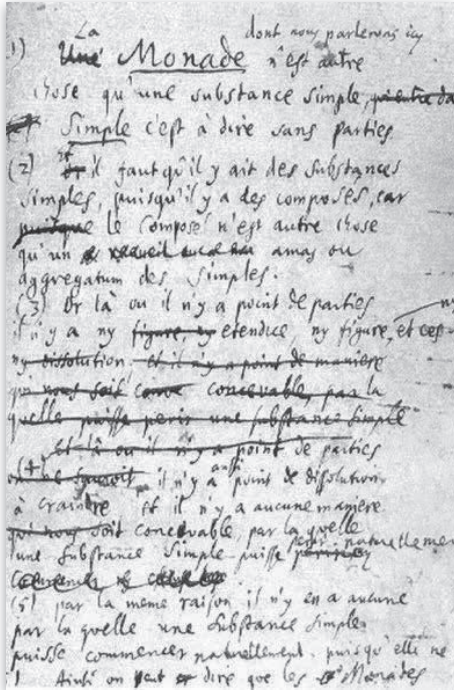 La dont nous parlerons icy
1) Une Monade n'est autre
chose qu'une substance simple, qui entre da
Simple c'est à dire sans parties
(2) et il faut qu'il y ait des substances
simples, puisqu'il y a des composés, car
puisque le composé n'est autre chose
qu'un recueil amas ou
aggregatum des simples.
(3) Or là ou il n'y a point de parties
il n'y a ny figure, ny etendue, ny figure, et ces
ny dissolution et il n'y a point de maniere
qui nous soit concevable par la
quelle puisse perir une substance simple
Et là ou il n'y a point de parties
(4) on ne sauroit il n'y a aussi point de dissolution
à craindre et il n'y a aucune maniere
qui nous soit concevable, par la quelle
une substance simple puisse perir naturellemen
(5) par la meme raison il n'y en a aucune
par la quelle une substance simple
puisse commencer naturellement, puisqu'elle ne
Ainsi on peut dire que les Monades